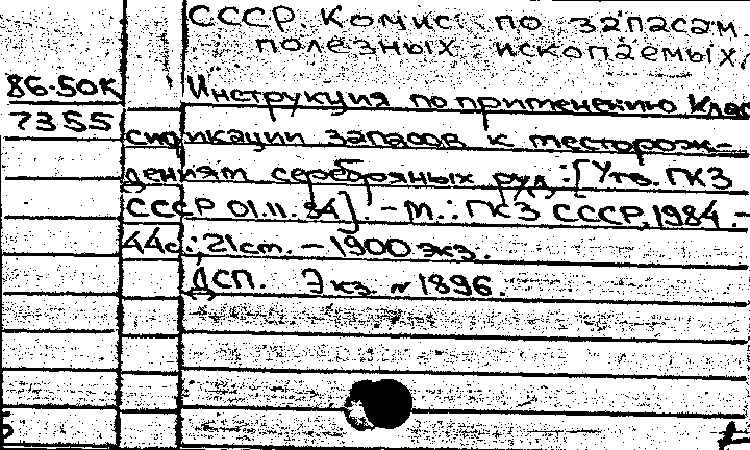 СССР. Комис. по запасам
полезных ископаемых,
86-50К Инструкция по применению Клас
7355
сификации запасов к месторож-
дениям серебряных руд :[Утв. ГКЗ
СССР 01.11.84]. - М.: ГКЗ СССР, 1984. -
44с.; 21см. - 1900 экз.
ДСП. Экз. № 1896.